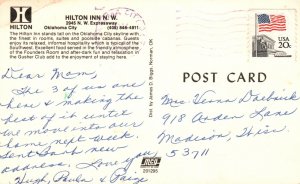 HILTON INN N.W.
2945 N.W. Expressway
Oklahoma City (405) 848-4811
HILTON
The Hilton Inn stands tall on the Oklahoma City skyline with
the finest in rooms, suites and poolside cabanas. Guests
enjoy its relaxed, informal hospitality which is typical of the
Southwest. Excellent food served in the friendly atmosphere
of the Founders Room and after-dark fun and relaxation in
the Gusher Club add to the enjoyment of staying here.
Dear Mom,
The 3 of us are
here & making the
best of it until
we move into our
home next week.
Sent Barb new
address. Love you
Hugh, Paula & Paige
Dist. by James D. Biggs, Norman, OK
MCG
201295
USA
20c
POST CARD
Mrs Verna
918 Arden Lane
Madison, Wisc
53711